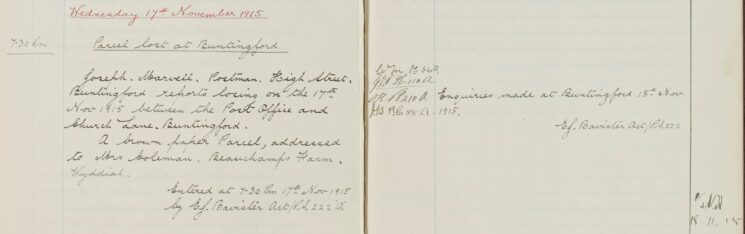 Wednesday 17th November 1915
7-30 Pm
Parcel lost at Buntingford
Joseph. Marvell. Postman. High Street.
Buntingford reports losing on the 17th
Nov 1915 between the Post Office and
Church Lane. Buntingford.
A brown paper Parcel, addressed
to Mrs Coleman. Beauchamps Farm.
Wyddial.
Entered at 7-30 Pm 17th Nov 1915
by Ef. Bavister Act/Ps. 222 A
Enquiries made at Buntingford 18th Nov
1915.
Ef. Bavister Act/Ps. 222
18.11.15